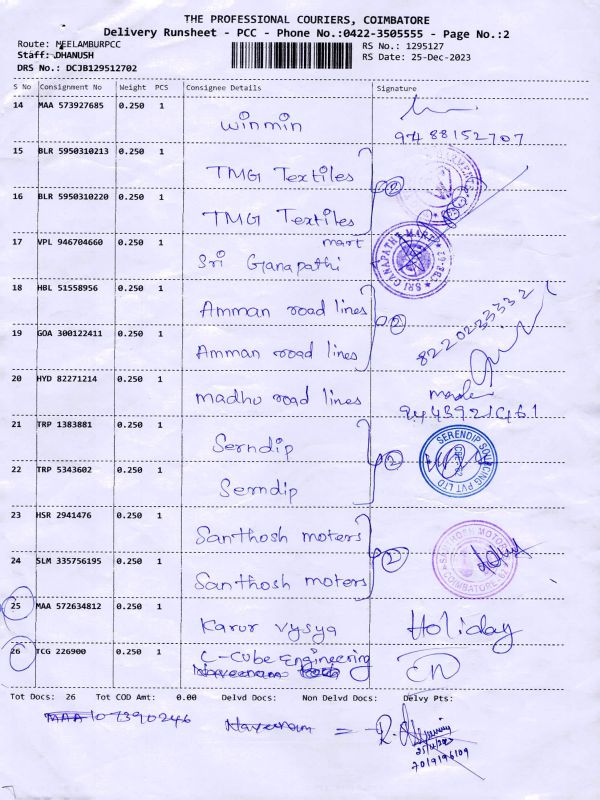 THE PROFESSIONAL COURIERS, COIMBATORE
Delivery Runsheet - PCC - Phone No.:0422-3505555 - Page No.:2
Route: MEELAMBURPCC
RS No.: 1295127
Staff: DHANUSH
RS Date: 25-Dec-2023
DRS No.: DCJB129512702
S No Consignment No Weight PCS Consignee Details Signature
14 MAA 573927685 0.250 1 Winmin 9488152707
15 BLR 5950310213 0.250 1 TMG Textiles
2
16 BLR 5950310220 0.250 1 TMG Textiles
17 VPL 946704660 0.250 1 Sri Ganapathi mart
SRI GANAPATHI MART
18 HBL 51558956 0.250 1 Amman road lines
2 8220233332
19 GOA 300122411 0.250 1 Amman road lines
20 HYD 82271214 0.250 1 madhu road lines
21 TRP 1383881 0.250 1 Serndip
2 SERENDIP SOURCING PVT LTD
22 TRP 5343602 0.250 1 Serndip
23 HSR 2941476 0.250 1 Santhosh moters
2 SANTHOSH MOTORS COIMBATORE
24 SLM 335756195 0.250 1 Santhosh moters
25 MAA 572634812 0.250 1 Karur Vysya Holiday
26 TCG 226900 0.250 1 C-Cube Engineering
Tot Docs: 26 Tot COD Amt: 0.00 Delvd Docs: Non Delvd Docs: Delvy Pts:
MAA 107390246 Naveenam =
7019196109